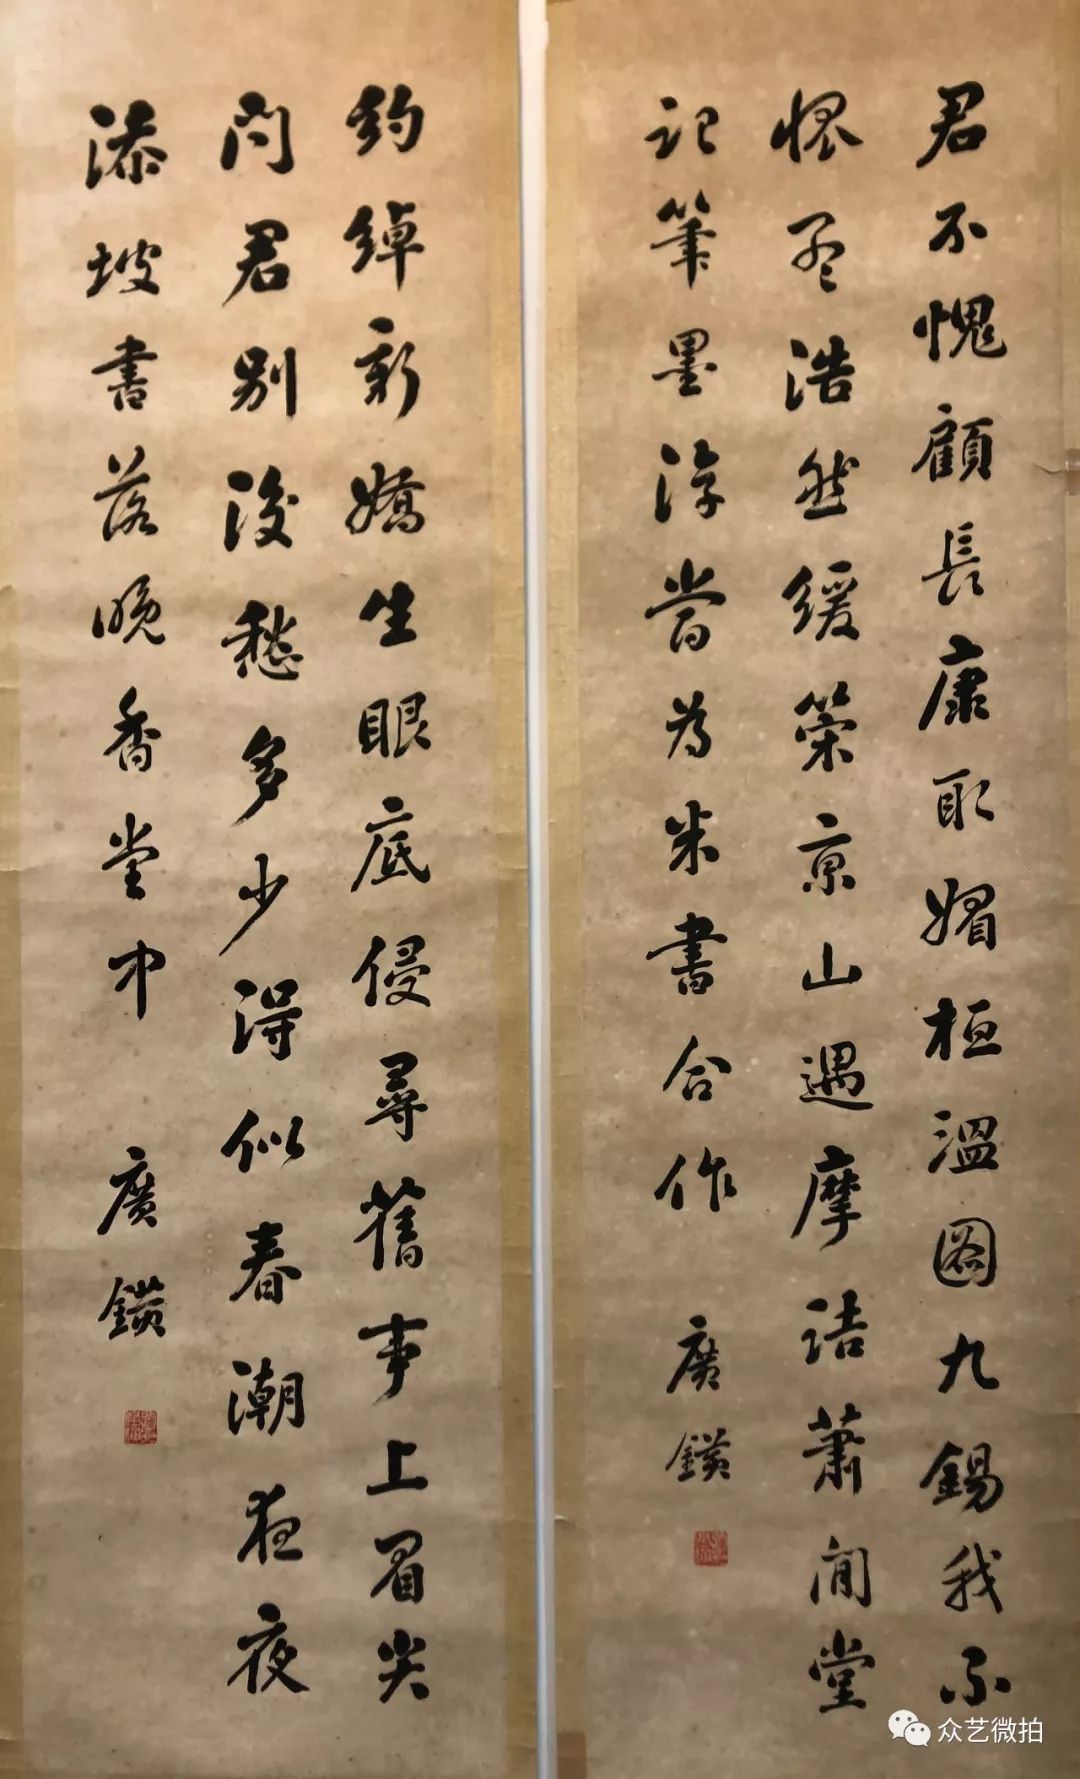 君不愧顧長康取媚桓溫圖九錫我不
怪孟浩然緩策京山遇摩詰蕭閒堂
記筆墨淳當為米書合作 廣鐄
約綽新嬌生眼底侵尋舊事上眉尖
問君別後愁多少得似春潮夜夜
添坡書落晚香堂中 廣鐄
众艺微拍